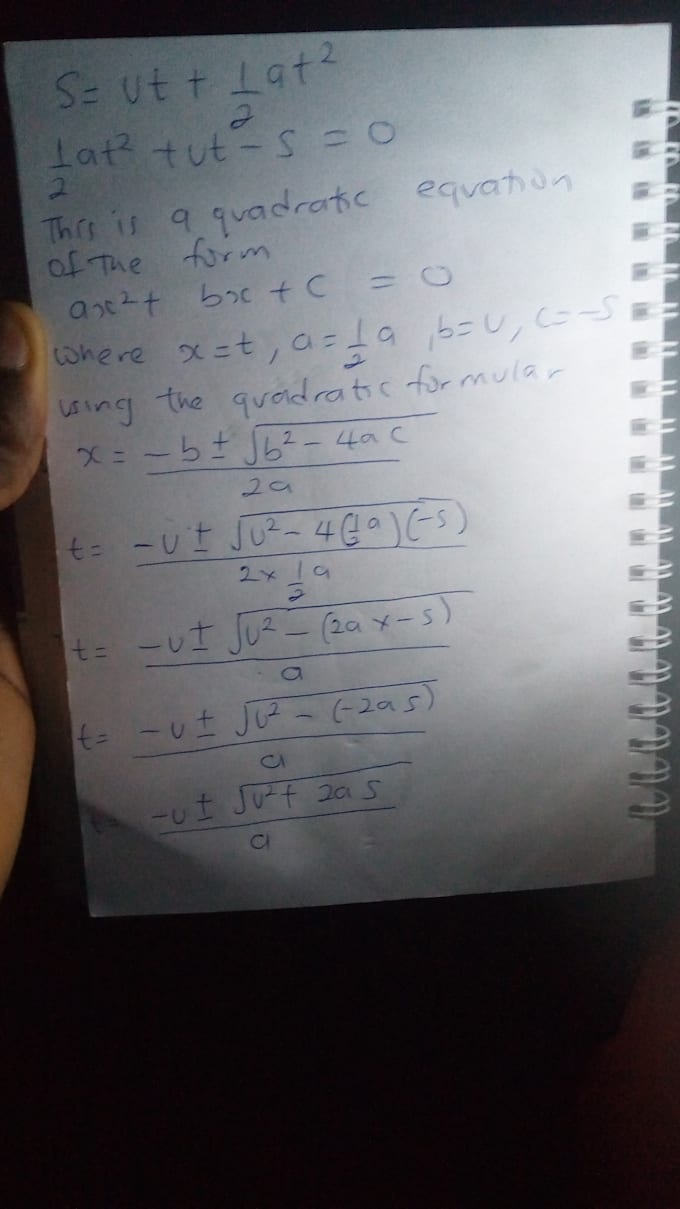 S= ut + 1/2 at²
1/2 at² + ut - s = 0
This is a quadratic equation
of the form
ax² + bx + c = 0
where x=t, a=1/2 a, b=u, c=-s
using the quadratic formular
x = (-b ± √(b² - 4ac))/2a
t= (-u ± √(u² - 4(1/2 a)(-s)))/(2 x 1/2 a)
t= (-u ± √(u² - (2a x -s)))/a
t= (-u ± √(u² - (-2as)))/a
t= (-u ± √(u² + 2as))/a